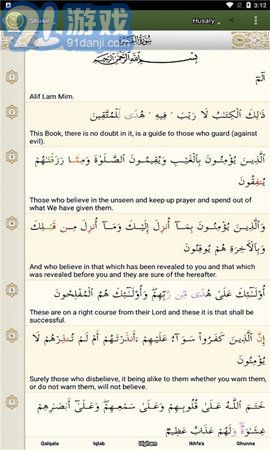 91游戏
91danji.com
3:12
Shakir
Husary
سُورَةُ البَقَرَةِ
بِسْمِ اللَّهِ الرَّحْمَٰنِ الرَّحِيمِ
الٓمٓ
1
Alif Lam Mim.
ذَٰلِكَ الْكِتَابُ لَا رَيْبَ ۛ فِيهِ ۛ هُدًى لِّلْمُتَّقِينَ
2
This Book, there is no doubt in it, is a guide to those who guard (against
evil).
الَّذِينَ يُؤْمِنُونَ بِالْغَيْبِ وَيُقِيمُونَ الصَّلَوٰةَ وَمِمَّا رَزَقْنَٰهُمْ
يُنفِقُونَ
3
Those who believe in the unseen and keep up prayer and spend out
of what We have given them.
وَالَّذِينَ يُؤْمِنُونَ بِمَآ أُنزِلَ إِلَيْكَ وَمَآ أُنزِلَ مِن قَبْلِكَ
وَبِالْآخِرَةِ هُمْ يُوقِنُونَ
4
And who believe in that which has been revealed to you and that which
was revealed before you and they are sure of the hereafter.
أُو۟لَٰٓئِكَ عَلَىٰ هُدًى مِّن رَّبِّهِمْ ۖ وَأُو۟لَٰٓئِكَ هُمُ الْمُفْلِحُونَ
5
These are on a right course from their Lord and these it is that shall be
successful.
إِنَّ الَّذِينَ كَفَرُوا۟ سَوَآءٌ عَلَيْهِمْ ءَأَنذَرْتَهُمْ أَمْ لَمْ تُنذِرْهُمْ لَا
يُؤْمِنُونَ
6
Surely those who disbelieve, it being alike to them whether you warn them,
or do not warn them, will not believe.
خَتَمَ اللَّهُ عَلَىٰ قُلُوبِهِمْ وَعَلَىٰ سَمْعِهِمْ ۖ وَعَلَىٰٓ أَبْصَٰرِهِمْ
غِشَٰوَةٌ ۖ وَلَهُمْ عَذَابٌ عَظِيمٌ
Qalqala Iqlab Idgham Ikhfa'a Ghunna